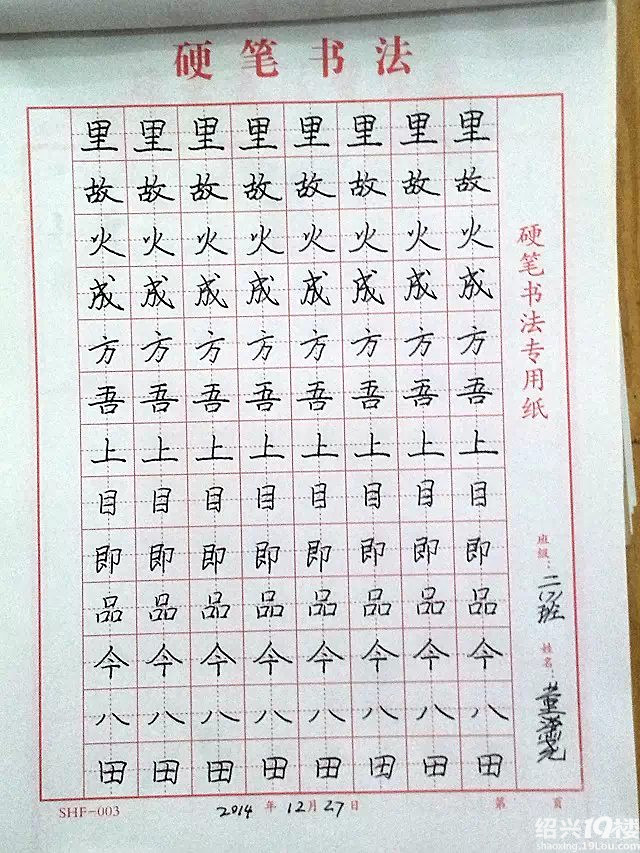 硬笔书法
里里里里里里里里
故故故故故故故故
火火火火火火火火
成成成成成成成成
方方方方方方方方
吾吾吾吾吾吾吾吾
上上上上上上上上
目目目目目目目目
即即即即即即即即
品品品品品品品品
今今今今今今今今
八八八八八八八八
田田田田田田田田
硬笔书法专用纸
班级：二(2)班
姓名：董
SHF-003
2014年12月27日
第 页
绍兴19楼
shaoxing.19lou.com